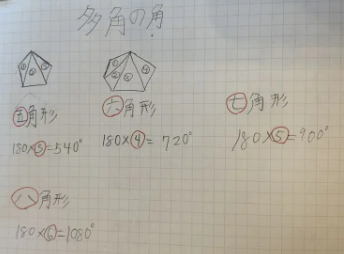 多角の角
① ② ③
① ② ③ ④
五角形
180×③=540°
六角形
180×④=720°
七角形
180×⑤=900°
八角形
180×⑥=1080°